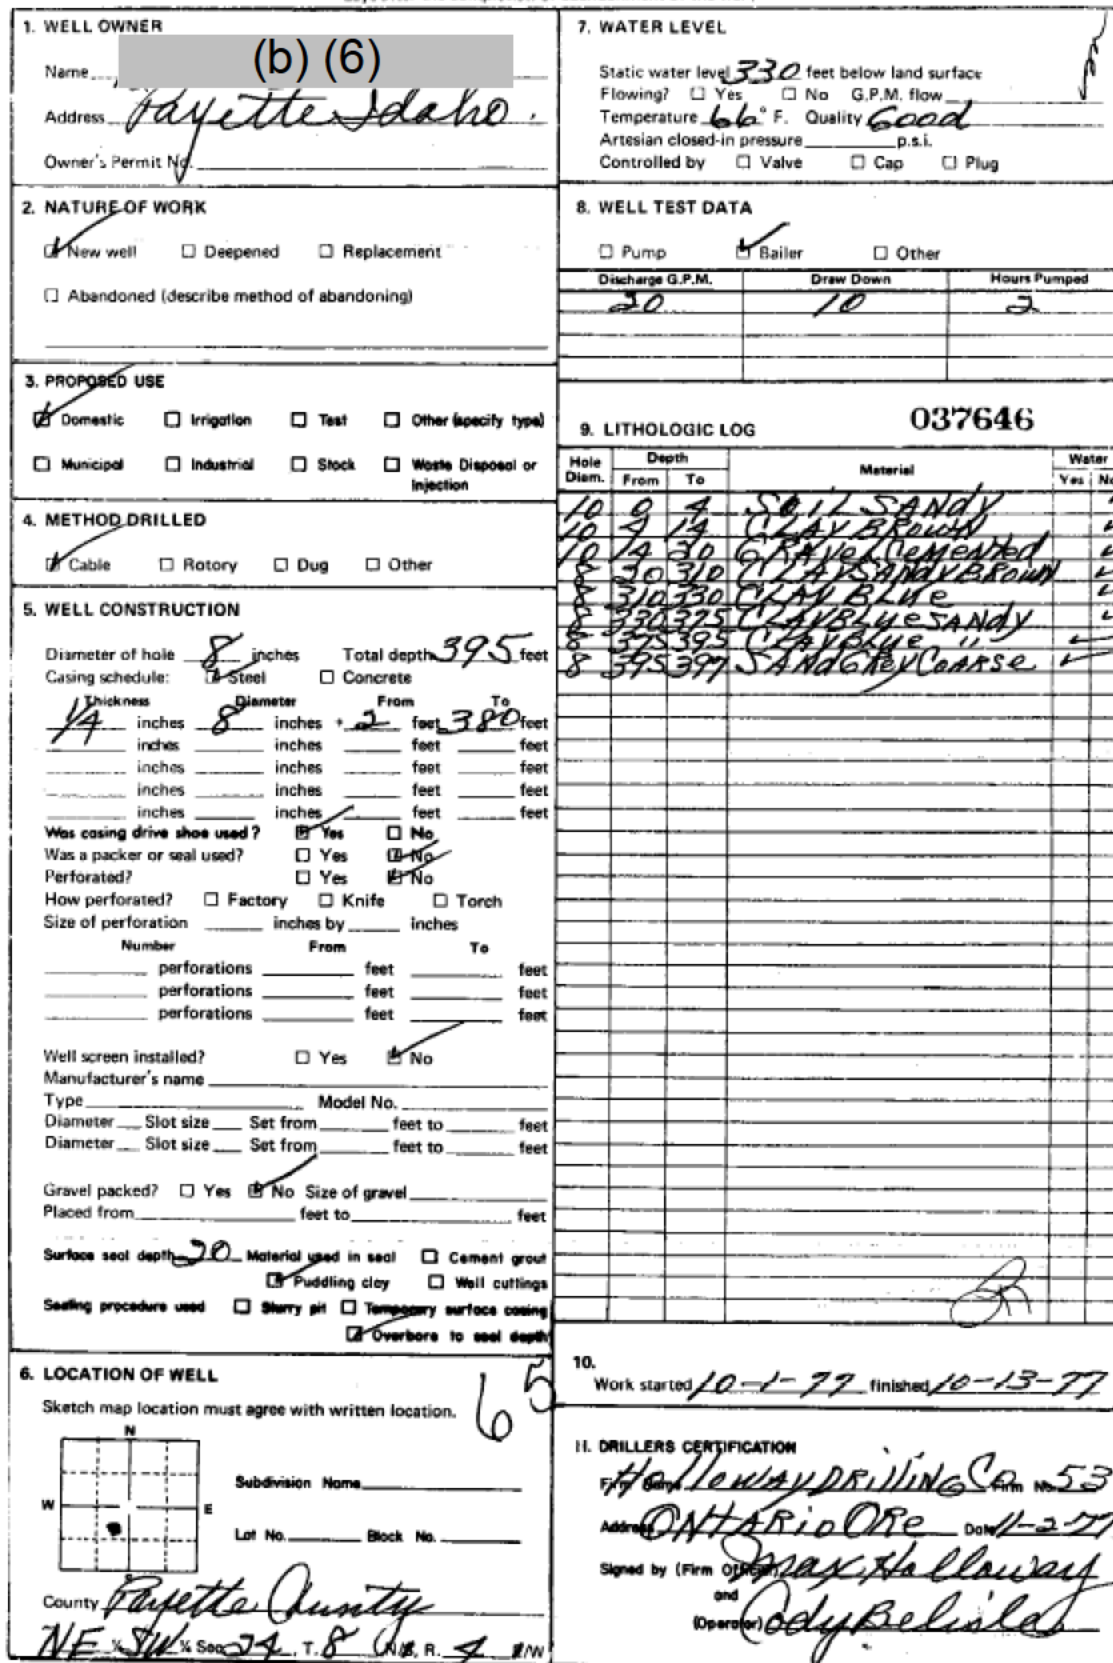 1. WELL OWNER
(b) (6)
Name
Address Payette Idaho.
Owner's Permit No.
2. NATURE OF WORK
☑ New well ☐ Deepened ☐ Replacement
☐ Abandoned (describe method of abandoning)
3. PROPOSED USE
☑ Domestic ☐ Irrigation ☐ Test ☐ Other (specify type)
☐ Municipal ☐ Industrial ☐ Stock ☐ Waste Disposal or
Injection
4. METHOD DRILLED
☑ Cable ☐ Rotory ☐ Dug ☐ Other
5. WELL CONSTRUCTION
Diameter of hole 8 inches Total depth 395 feet
Casing schedule: ☑ Steel ☐ Concrete
Thickness Diameter From To
1/4 inches 8 inches + 2 feet 380 feet
inches inches feet feet
inches inches feet feet
inches inches feet feet
inches inches feet feet
Was casing drive shoe used? ☑ Yes ☐ No
Was a packer or seal used? ☐ Yes ☑ No
Perforated? ☐ Yes ☑ No
How perforated? ☐ Factory ☐ Knife ☐ Torch
Size of perforation inches by inches
Number From To
perforations feet feet
perforations feet feet
perforations feet feet
Well screen installed? ☐ Yes ☑ No
Manufacturer's name
Type Model No.
Diameter Slot size Set from feet to feet
Diameter Slot size Set from feet to feet
Gravel packed? ☐ Yes ☑ No Size of gravel
Placed from feet to feet
Surface seal depth 20 Material used in seal ☐ Cement grout
☑ Puddling clay ☐ Well cuttings
Sealing procedure used ☐ Slurry pit ☐ Temporary surface casing
☑ Overbore to seal depth
6. LOCATION OF WELL
65
Sketch map location must agree with written location.
N
W E
Subdivision Name
Lot No. Block No.
County Payette County
NE ¼ SW ¼ Sec. 24, T. 8 N/S, R. 4 E/W
7. WATER LEVEL
Static water level 330 feet below land surface
Flowing? ☐ Yes ☐ No G.P.M. flow
Temperature 66° F. Quality Good
Artesian closed-in pressure p.s.i.
Controlled by ☐ Valve ☐ Cap ☐ Plug
8. WELL TEST DATA
☐ Pump ☑ Bailer ☐ Other
Discharge G.P.M. Draw Down Hours Pumped
20 10 2
037646
9. LITHOLOGIC LOG
Hole Diam. Depth From To Material Water Yes No
10 0 4 SOIL SANDY ✓
10 4 14 CLAY BROWN ✓
10 14 30 GRAVEL CEMENTED ✓
8 30 310 CLAY SANDY BROWN ✓
8 310 330 CLAY BLUE ✓
8 330 375 CLAY BLUE SANDY ✓
8 375 395 CLAY BLUE " ✓
8 395 397 SAND GREY COARSE ✓
10.
Work started 10-1-77 finished 10-13-77
11. DRILLERS CERTIFICATION
Firm Name Holloway DRILLING Co Firm No. 53
Address ONTARIO ORE Date 11-2-77
Signed by (Firm Official) Max Holloway
and
(Operator) Cody Belisle